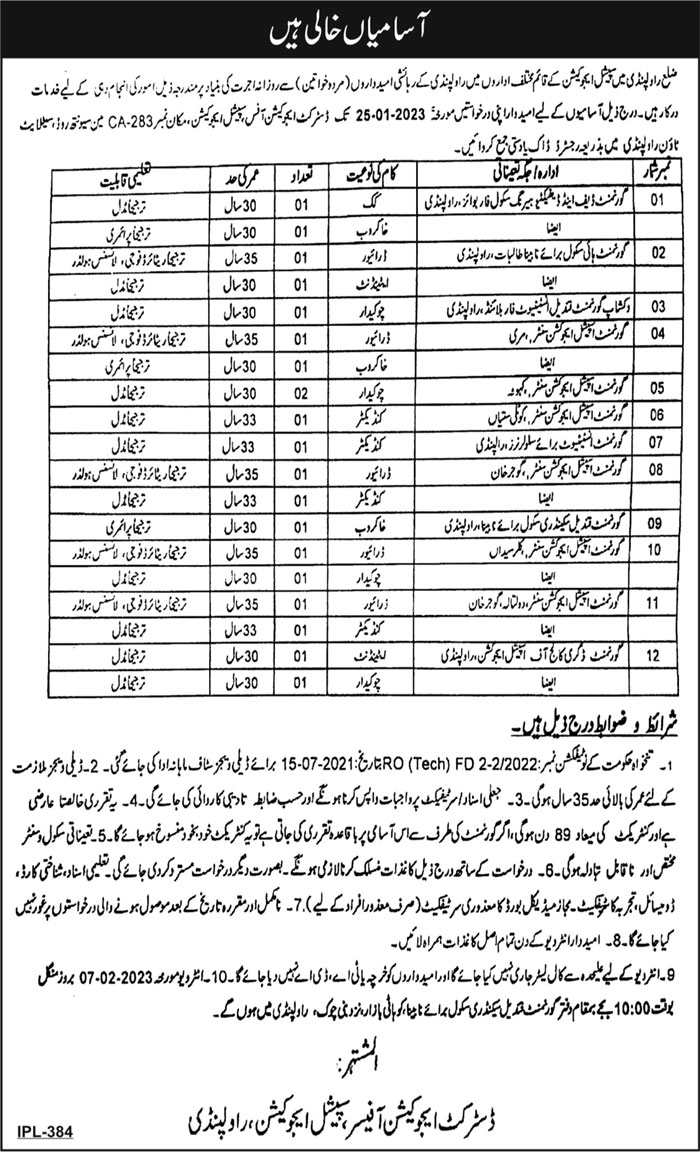 آسامیاں خالی ہیں
ضلع راولپنڈی میں سپیشل ایجوکیشن کے قائم مختلف اداروں میں راولپنڈی کے رہائشی امیدواروں (مرد و خواتین) سے روزانہ اجرت کی بنیاد پر مندرجہ ذیل امور کی انجام دہی کے لیے خدمات
درکار ہیں۔ درج ذیل آسامیوں کے لیے امیدوار اپنی درخواستیں مورخہ 25-01-2023 تک ڈسٹرکٹ ایجوکیشن آفس، سپیشل ایجوکیشن، مکان نمبر CA-283 مین سیونتھ روڈ، سیٹلائیٹ
ٹاؤن راولپنڈی میں بذریعہ رجسٹرڈ ڈاک یا دستی جمع کروائیں۔
نمبر شمار ادارہ / جگہ تعیناتی کام کی نوعیت تعداد عمر کی حد تعلیمی قابلیت
01 گورنمنٹ ڈیف اینڈ ڈیفیکٹیو ہیرنگ سکول فار بوائز، راولپنڈی کک 01 30 سال ترجیحاً مڈل
ایضا خاکروب 01 30 سال ترجیحاً پرائمری
02 گورنمنٹ ہائی سکول برائے نابینا طالبات، راولپنڈی ڈرائیور 01 35 سال ترجیحاً ریٹائرڈ فوجی، لائسنس ہولڈر
ایضا اٹینڈنٹ 01 30 سال ترجیحاً مڈل
03 وکشاپ گورنمنٹ قندیل انسٹیٹیوٹ فار بلائنڈ، راولپنڈی چوکیدار 01 30 سال ترجیحاً مڈل
04 گورنمنٹ اسپیشل ایجوکیشن سنٹر، مری ڈرائیور 01 35 سال ترجیحاً ریٹائرڈ فوجی، لائسنس ہولڈر
ایضا خاکروب 01 30 سال ترجیحاً پرائمری
05 گورنمنٹ اسپیشل ایجوکیشن سنٹر، کہوٹہ چوکیدار 02 30 سال ترجیحاً مڈل
06 گورنمنٹ اسپیشل ایجوکیشن سنٹر، کوٹلی ستیاں کنڈیکٹر 01 33 سال ترجیحاً مڈل
07 گورنمنٹ انسٹیٹیوٹ برائے سلولرنرز، راولپنڈی کنڈیکٹر 01 33 سال ترجیحاً مڈل
08 گورنمنٹ اسپیشل ایجوکیشن سنٹر، گوجر خان ڈرائیور 01 35 سال ترجیحاً ریٹائرڈ فوجی، لائسنس ہولڈر
ایضا کنڈیکٹر 01 33 سال ترجیحاً مڈل
09 گورنمنٹ قندیل سیکنڈری سکول برائے نابینا، راولپنڈی خاکروب 01 30 سال ترجیحاً پرائمری
10 گورنمنٹ اسپیشل ایجوکیشن سنٹر، کلرسیداں ڈرائیور 01 35 سال ترجیحاً ریٹائرڈ فوجی، لائسنس ہولڈر
ایضا چوکیدار 01 30 سال ترجیحاً مڈل
11 گورنمنٹ اسپیشل ایجوکیشن سنٹر، دولتالہ، گوجر خان ڈرائیور 01 35 سال ترجیحاً ریٹائرڈ فوجی، لائسنس ہولڈر
ایضا کنڈیکٹر 01 33 سال ترجیحاً مڈل
12 گورنمنٹ ڈگری کالج آف اسپیشل ایجوکیشن، راولپنڈی اٹینڈنٹ 01 30 سال ترجیحاً مڈل
ایضا چوکیدار 01 30 سال ترجیحاً مڈل
شرائط و ضوابط درج ذیل ہیں۔
1۔ تنخواہ حکومت کے نوٹیفکیشن نمبر: RO (Tech) FD 2-2/2022 بتاریخ: 15-07-2021 برائے ڈیلی ویجز سٹاف ماہانہ ادا کی جائے گی۔ 2۔ ڈیلی ویجز ملازمت
کے لئے عمر کی بالائی حد 35 سال ہوگی۔ 3۔ جعلی اسناد / سرٹیفکیٹ پر واجبات واپس کرنا ہونگے اور حسب ضابطہ تادیبی کاروائی کی جائے گی۔ 4۔ یہ تقرری خالصتاً عارضی
ہے اور کنٹریکٹ کی میعاد 89 دن ہوگی، اگر گورنمنٹ کی طرف سے اس آسامی پر باقاعدہ تقرری کی جاتی ہے تو یہ کنٹریکٹ خود بخود منسوخ ہو جائے گا۔ 5۔ تعیناتی سکول و سنٹر
مختص اور ناقابل تبادلہ ہوگی۔ 6۔ درخواست کے ساتھ درج ذیل کاغذات منسلک کرنا لازمی ہونگے۔ بصورت دیگر درخواست مسترد کر دی جائے گی۔ تعلیمی اسناد، شناختی کارڈ،
ڈومیسائل، تجربہ کا سرٹیفکیٹ۔ مجاز میڈیکل بورڈ کا معذوری سرٹیفکیٹ (صرف معذور افراد کے لیے)۔ 7۔ نامکمل اور مقررہ تاریخ کے بعد موصول ہونے والی درخواستوں پر غور نہیں
کیا جائے گا۔ 8۔ امیدوار انٹرویو کے دن تمام اصل کاغذات ہمراہ لائیں۔
9۔ انٹرویو کے لیے علیحدہ سے کال لیٹر جاری نہیں کیا جائے گا اور امیدواروں کو خرچہ یا ٹی اے، ڈی اے نہیں دیا جائے گا۔ 10۔ انٹرویو مورخہ 07-02-2023 بروز منگل
بوقت 10:00 بجے بمقام دفتر گورنمنٹ قندیل سیکنڈری سکول برائے نابینا، کوہاٹی بازار، نزد بنی چوک، راولپنڈی میں ہوں گے۔
المشتہر:
ڈسٹرکٹ ایجوکیشن آفیسر، سپیشل ایجوکیشن، راولپنڈی
IPL-384